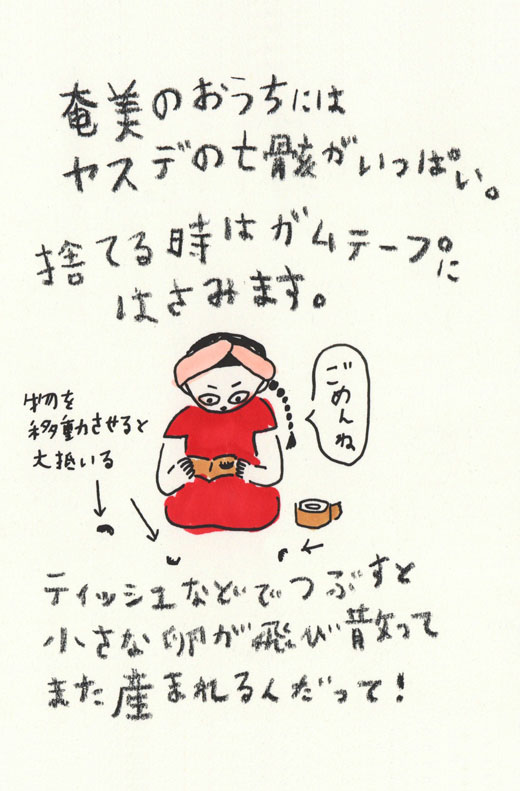 奄美のおうちには
ヤスデの亡骸がいっぱい。
捨てる時はガムテープに
はさみます。
ごめんね
物を
移動させると
大抵いる
ティッシュなどでつぶすと
小さな卵が飛び散って
また産まれるんだって！